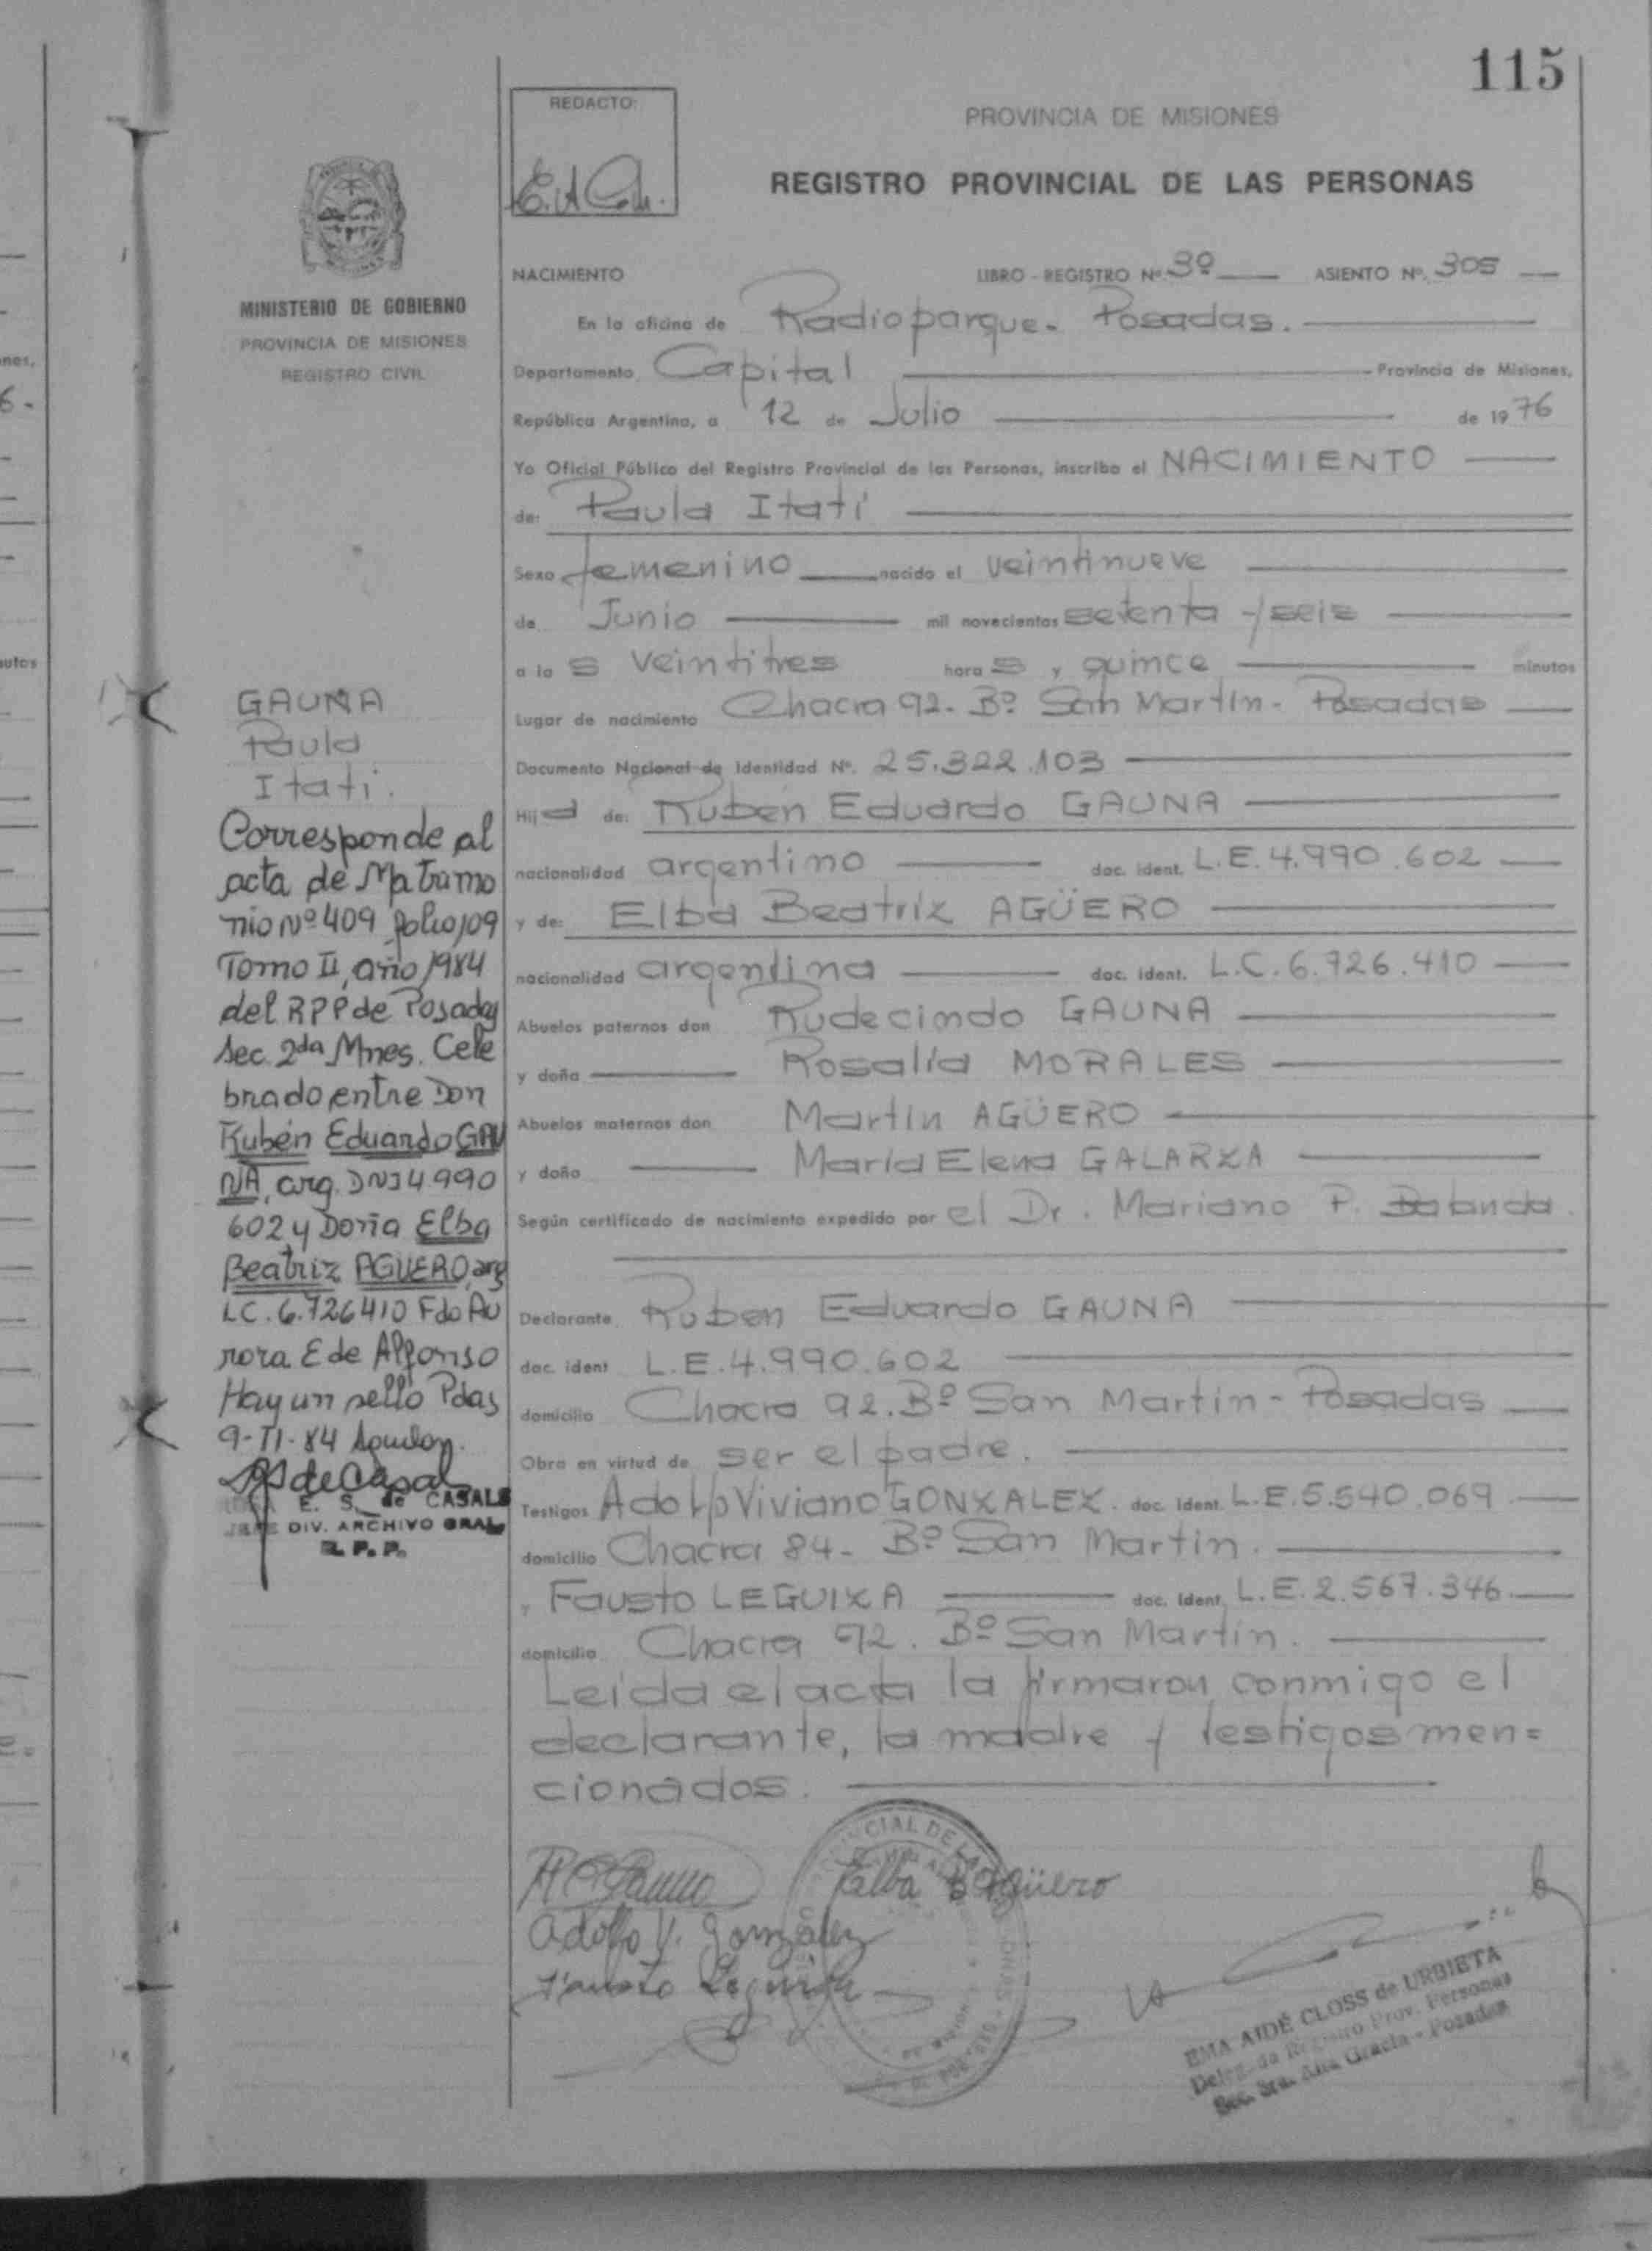 115
REDACTO:
PROVINCIA DE MISIONES
REGISTRO PROVINCIAL DE LAS PERSONAS
MINISTERIO DE GOBIERNO
PROVINCIA DE MISIONES
REGISTRO CIVIL
NACIMIENTO LIBRO - REGISTRO Nº 3º ASIENTO Nº. 305
En la oficina de Radioparque - Posadas.
Departamento Capital Provincia de Misiones,
República Argentina, a 12 de Julio de 1976
Yo Oficial Público del Registro Provincial de las Personas, inscribo el NACIMIENTO
de: Paula Itatí
Sexo femenino nacido el veintinueve
de Junio mil novecientos setenta y seis
a las veintitres horas y quince minutos
Lugar de nacimiento Chacra 92 - Bº San Martín - Posadas
Documento Nacional de Identidad Nº. 25.322.103
Hija de: Rubén Eduardo GAUNA
nacionalidad argentino doc. ident. L.E. 4.990.602
y de: Elba Beatriz AGÜERO
nacionalidad argentina doc. ident. L.C. 6.726.410
Abuelos paternos don Rudecindo GAUNA
y doña Rosalía MORALES
Abuelos maternos don Martín AGÜERO
y doña María Elena GALARZA
Según certificado de nacimiento expedido por el Dr. Mariano P.
Declarante Ruben Eduardo GAUNA
doc. ident L.E. 4.990.602
domicilio Chacra 92. Bº San Martín - Posadas
Obra en virtud de ser el padre.
Testigos Adolfo Viviano GONZALEZ. doc. ident. L.E. 5.540.069
domicilio Chacra 84 - Bº San Martin.
y Fausto LEGUIZA doc. ident. L.E. 2.567.346
domicilio Chacra 92. Bº San Martín.
Leida el acta la firmaron conmigo el
declarante, la madre y testigos men=
cionados.
GAUNA
Paula
Itatí.
Corresponde al
acta de Matrimo
nio Nº 409 folio 109
Tomo II, año 1984
del RPP de Posadas
Sec. 2da Mnes. Cele
brado entre Don
Rubén Eduardo GAU
NA, arg. DNI 4.990
602 y Doña Elba
Beatriz AGUERO, arg
LC. 6.726410 Fdo Au
rora E de Alfonso
Hay un sello Pdas
9-II-84
E. S. de CASALS
JEFE DIV. ARCHIVO GRAL
R. P. P.
Elba B Agüero
Adolfo V. González
Fausto Leguiza
EMA AIDÉ CLOSS de URBIETA
Prov. Personas
Posadas